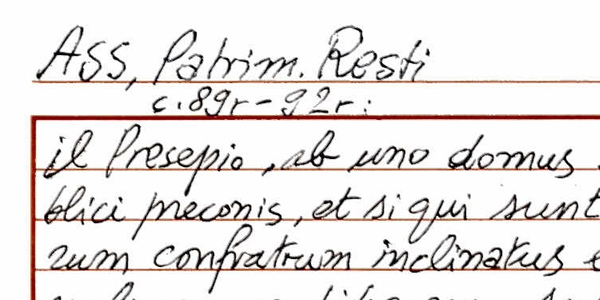 ASS, Patrim. Resti
c. 89r - 92r:
il Presepio, ab uno domus
blici preconis, et si qui sunt
rum confratrum inclinatus e